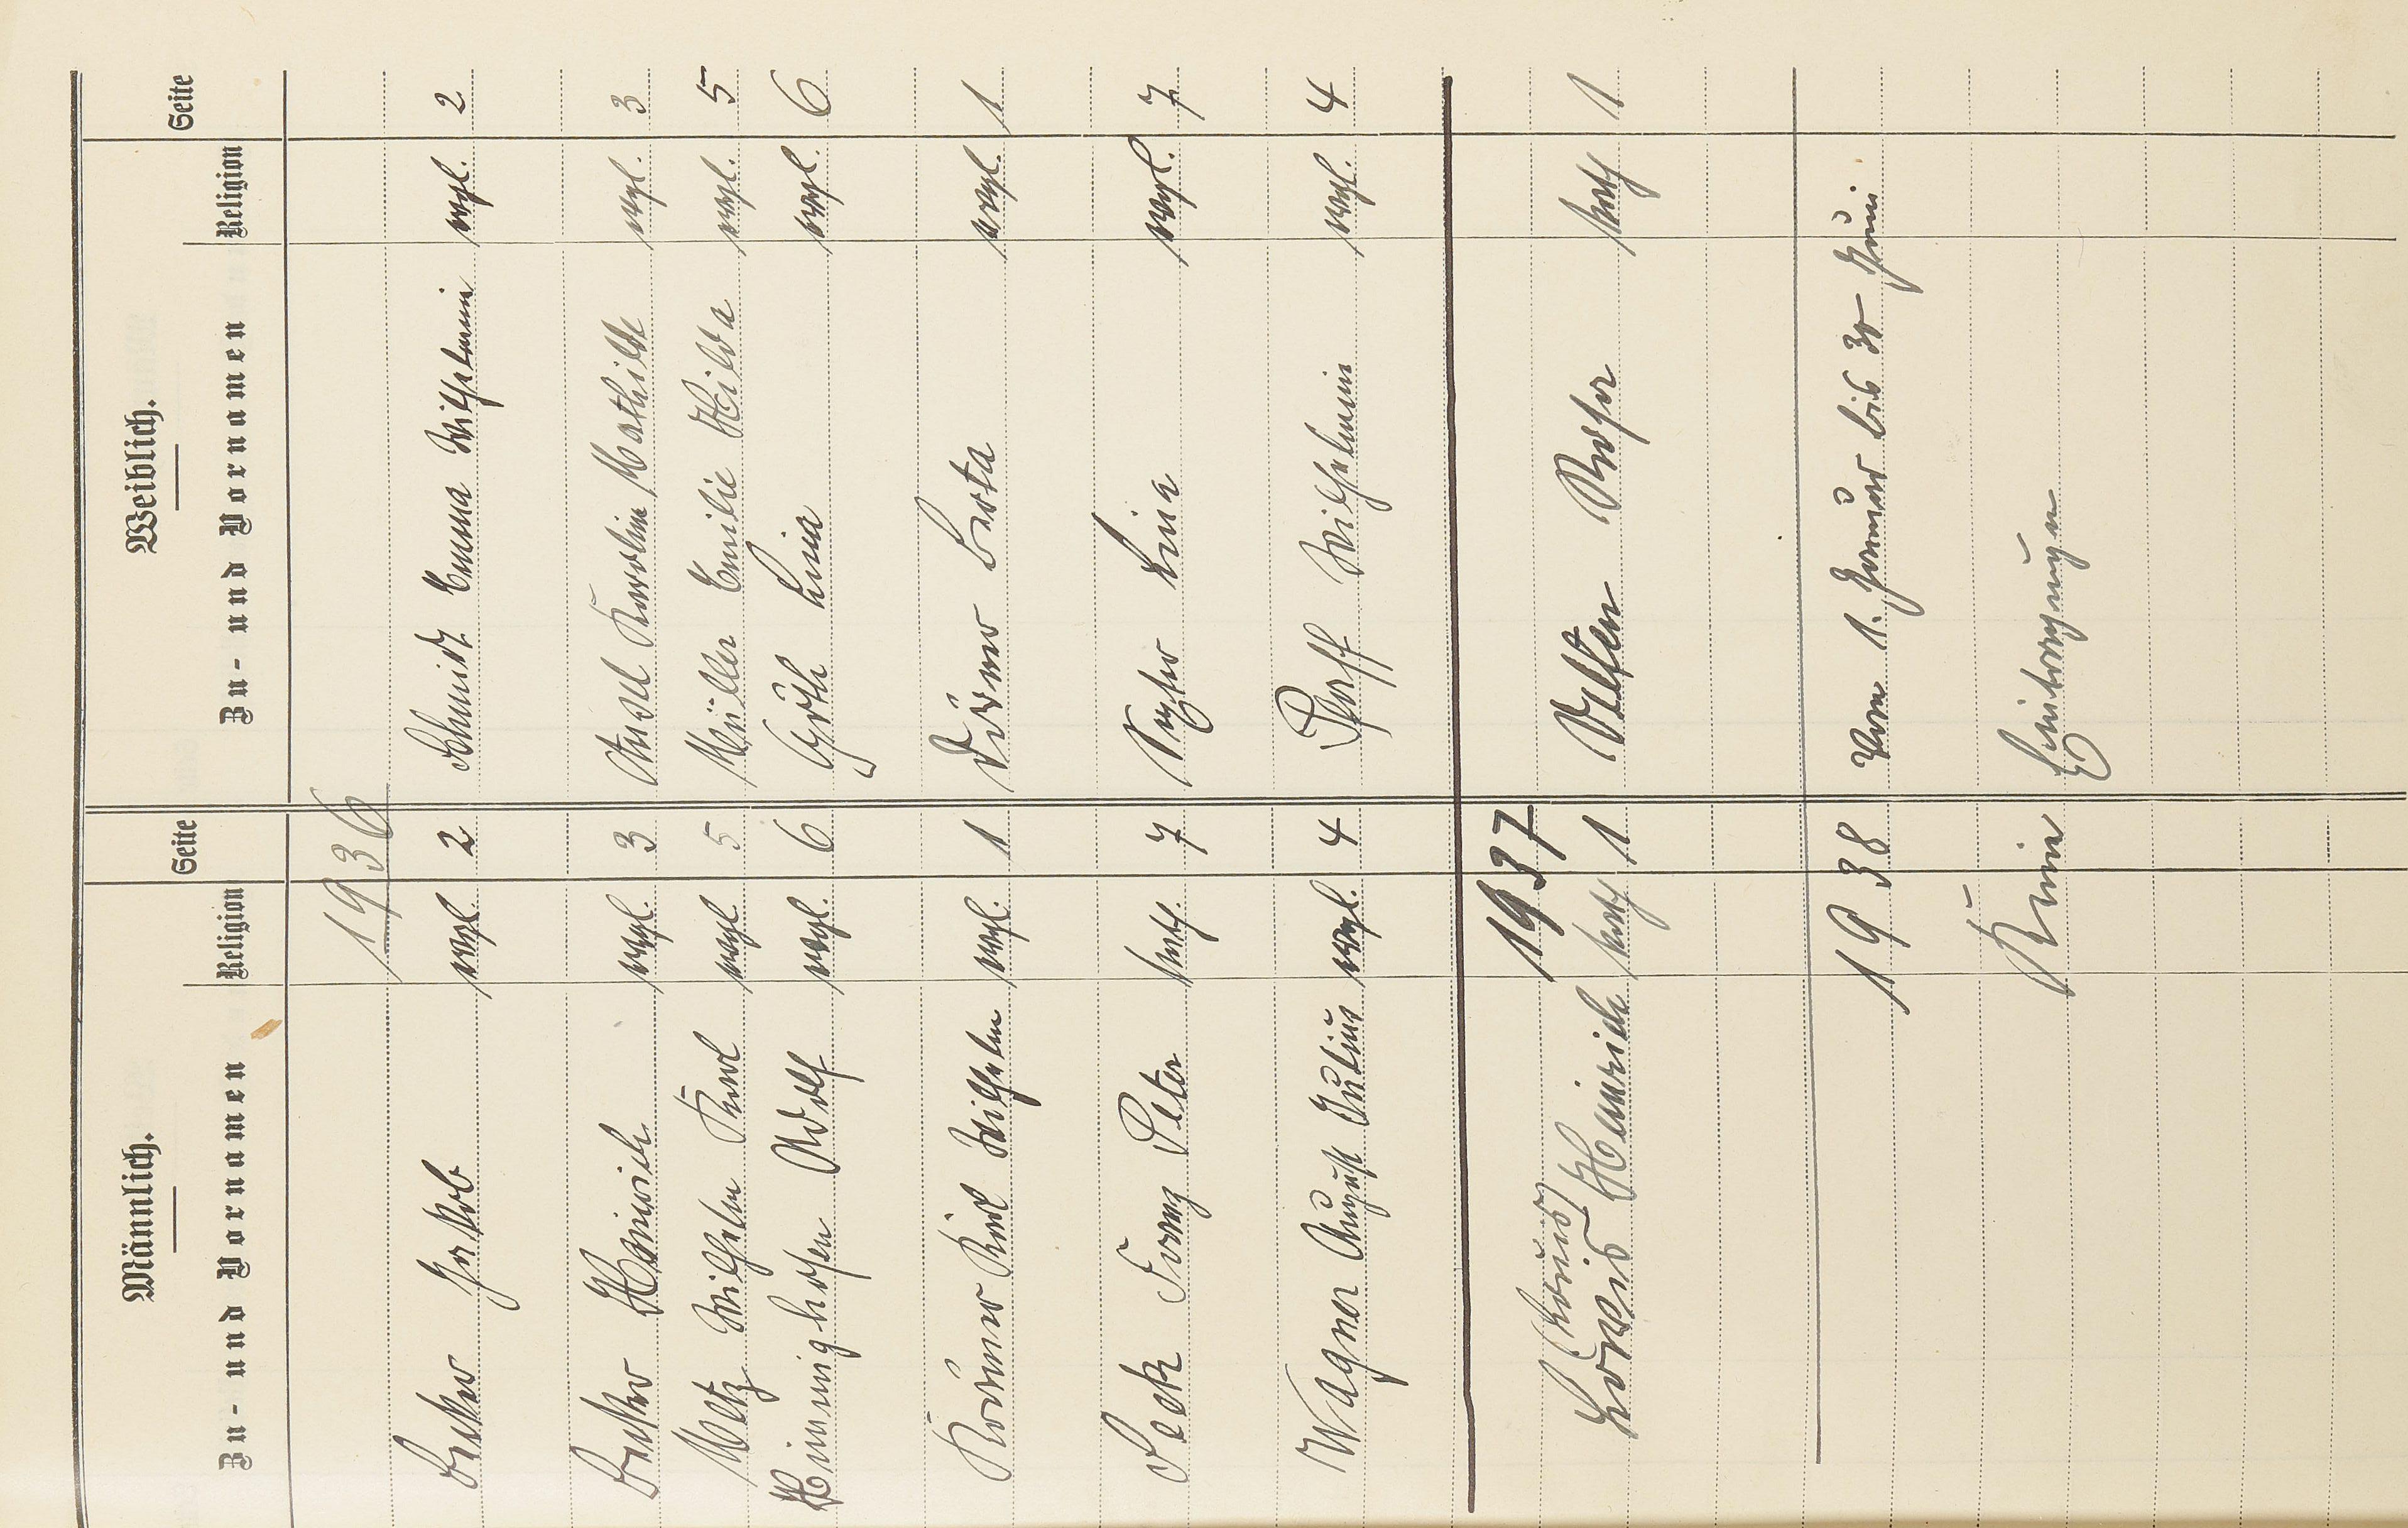 Männlich. Weiblich.
Zu- und Vornamen Religion Seite Zu- und Vornamen Religion Seite
1936
Becker Jakob evgl. 2 Schmidt Emma Wilhelmin evgl. 2
Becker Heinrich evgl. 3 Karolin Mathilde evgl. 3
Metz Wilhelm Karl evgl. 5 Müller Emilie Hilda evgl. 5
Hinnighofen Adolf evgl. 6 Güth Lina evgl. 6
Körner Karl Wilhelm evgl. 1 Dörner Berta evgl. 1
Peek Franz Peter kath. 7 Lina evgl. 7
Wagner August Julius evgl. 4 Pfaff Wilhelmin evgl. 4
1937
(Louis)
Heinrich kath 1 Velten Rosa kath 1
1938 Vom 1. Januar bis 30 Juni
Keine Eintragungen